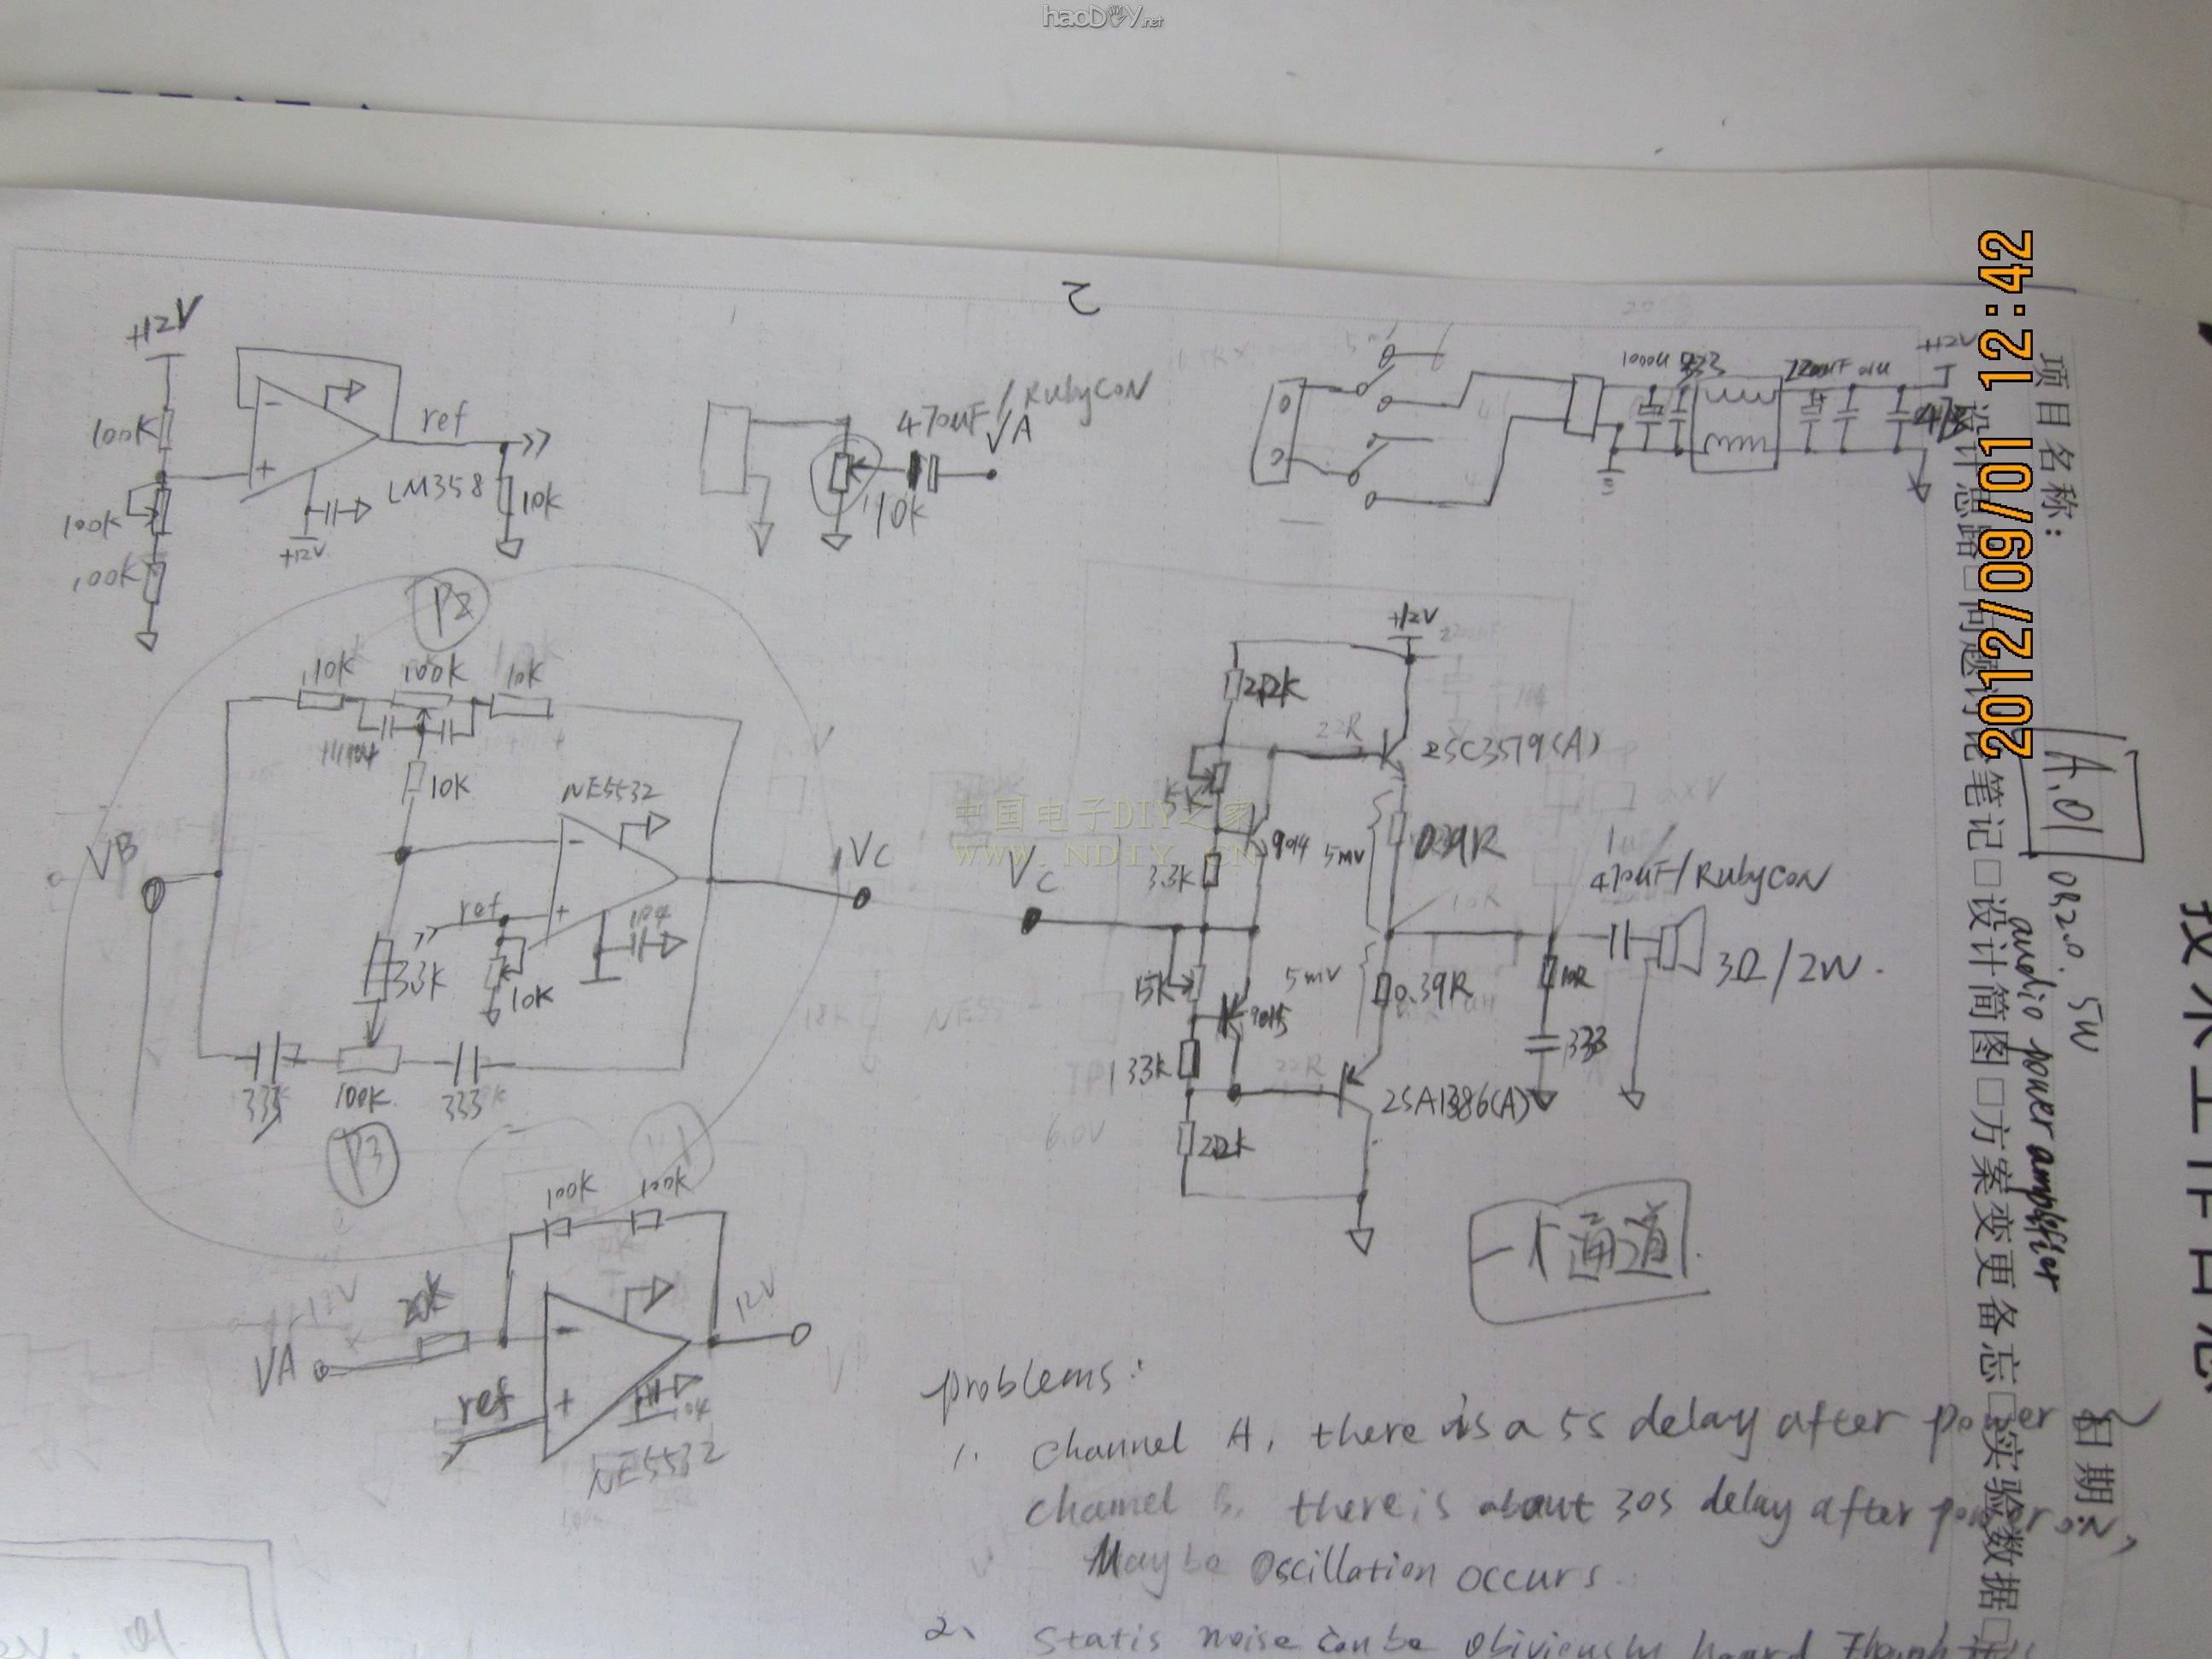 haoDIY.net
2
+12V
100K
100K
100K
ref
LM358
+12V
10K
470UF/RUbyCON
VA
10K
1000U
+12V
P2
10K
100K
10K
10K
NE5532
VB
VC
ref
104
33K
10K
333
100K
333
P3
+12V
22K
22R
2SC3519(A)
5K
9014
5mv
0.39R
3.3K
VC
10R
470UF/RUbyCON
3Ω/2W.
15K
5mV
0.39R
10R
9015
333
33K
22R
2SA1386(A)
22K
6.0V
一个通道
100K
100K
20K
12V
VA
ref
104
NE5532
problems:
1. Channel A, there is a 5s delay after power
Channel B, there is about 30s delay after power ON,
Maybe Oscillation occurs.
2、 Statis noise can be obiviously heard Though
中国电子DIY之家
www.NDIY.CN
2012/09/01 12:42
项目名称:
A.01
5W
audio power amplifier
笔记□设计简图□方案变更备忘□实验数据□
日期